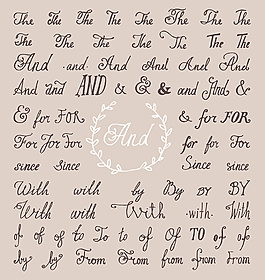 The The The The The The The
The The The The The The The
And and And And And And
And and AND & & & and And &
& for FOR & for FOR
For For For And for for For
since Since Since since
With with by By BY BY
With with With with With
of of of to To to of Of TO of of
by by From From from from From